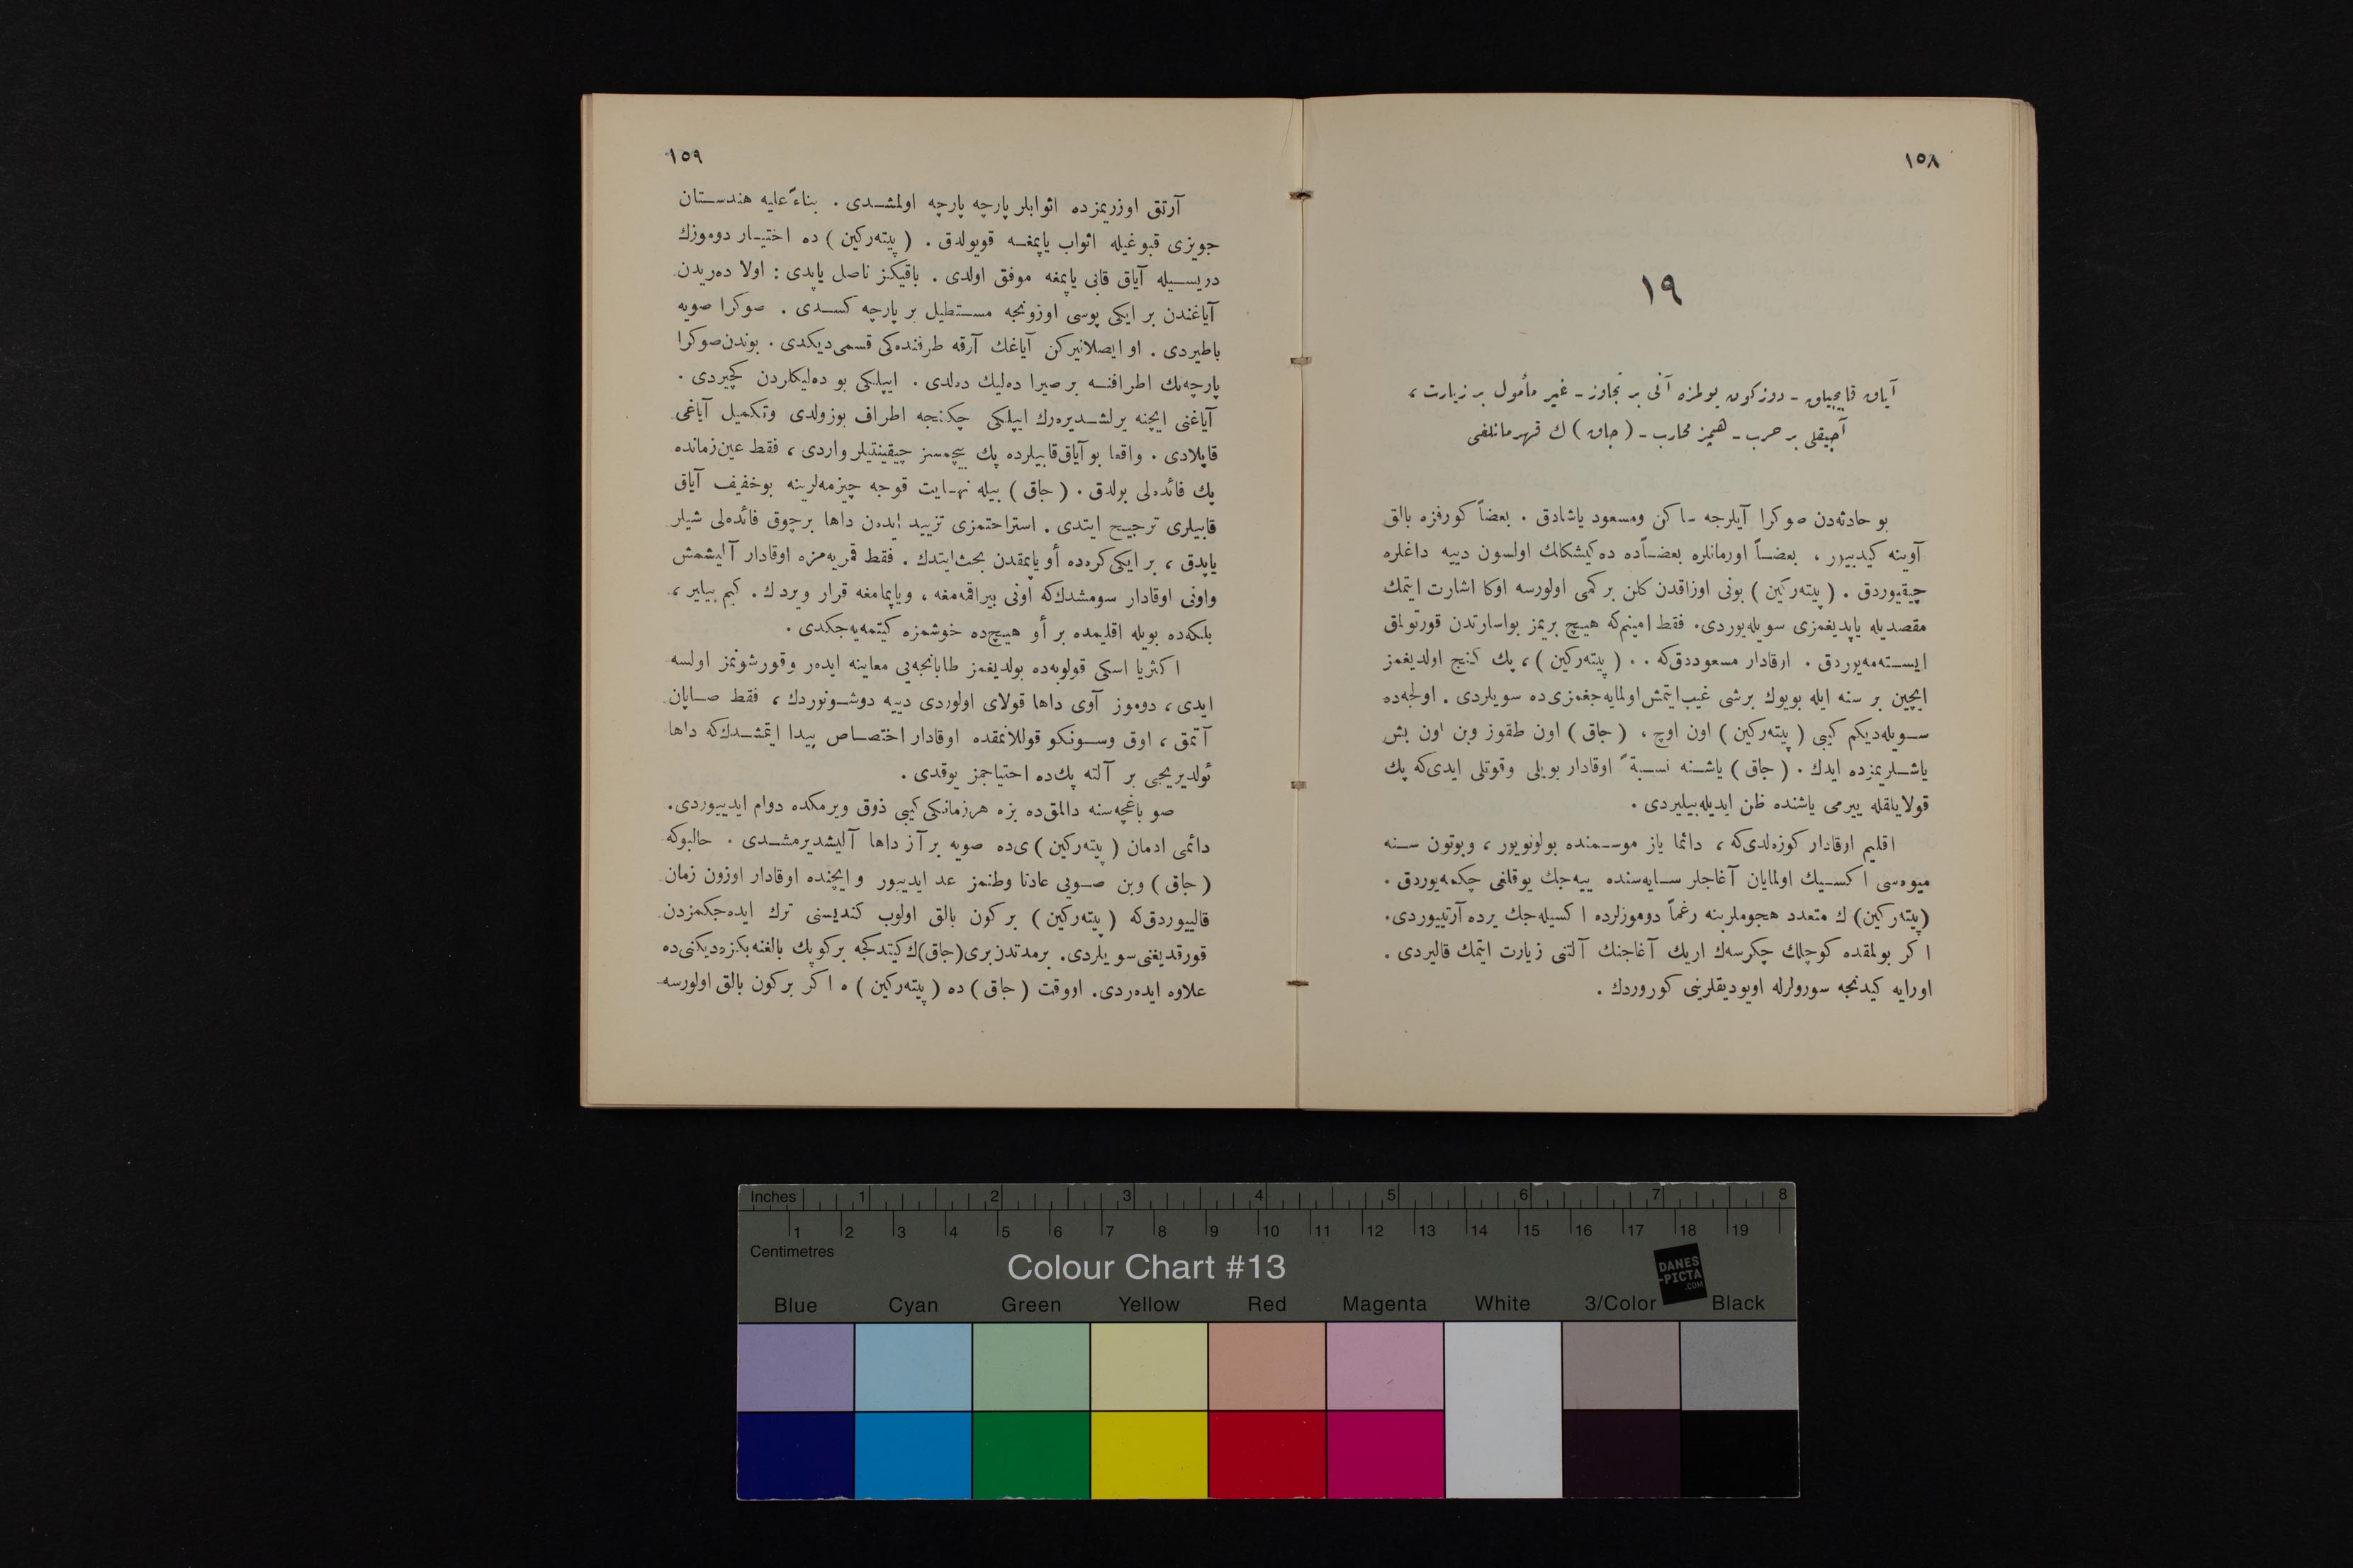 ١٥٨
١٩
آیاق قابجیلق - دوزكون یولمزه آنی بر تجاوز - غیر مأمول بر زیارت ،
آجیقلی بر حرب - هیمز محارب - ( جاق ) ك قهرمانلغی
بو حادثه‌دن صوكرا آیلرجه ساكن ومسعود یاشادق . بعضاً كورفزه بالق
آوینه كیدییور ، بعضاً اورمانلره بعضاًده ده كیشكلك اولسون دییه داغلره
چیقیوردق . ( پیته‌ركین ) بونی اوزاقدن كلن بر كمی اولورسه اوكا اشارت ایتمك
مقصدیله یاپدیغمزی سویله‌یوردی. فقط امینم‌كه هیچ بریمز بواسارتدن قورتولمق
ایسته‌مه‌یوردق . اوقادار مسعوددق‌كه . . ( پیته‌ركین ) ، پك كنج اولدیغمز
ایچین بر سنه ایله بویوك برشی غیب‌ایتمش‌اولمایه‌جغمزی‌ده سویلردی . اولجه‌ده
سویله‌دیكم كیبی ( پیته‌ركین ) اون اوچ ، ( جاق ) اون طقوز وبن اون بش
یاشلریمزده ایدك . ( جاق ) یاشنه نسبةً اوقادار بویلی وقوتلی ایدی‌كه پك
قولایلقله ییرمی یاشنده ظن ایدیله‌بیلیردی .
اقلیم اوقادار كوزه‌لدی‌كه ، دائما یاز موسمنده بولونویور ، وبوتون سنه
میوه‌سی اكسیك اولمایان آغاجلر سایه‌سنده ییه‌جك یوقلغی چكمه‌یوردق .
(پیته‌ركین) ك متعدد هجوملرینه رغماً دوموزلرده اكسیله‌جك یرده آرتییوردی.
اكر بولمقده كوچلك چكرسه‌ك اریك آغاجنك آلتنی زیارت ایتمك قالیردی .
اورایه كیدنجه سورولرله اویودیقلرینی كوروردك .
١٥٩
آرتق اوزریمزده اثوابلر پارچه پارچه اولمشدی . بناءً علیه هندستان
جویزی قبوغیله اثواب یاپمغه قویولدق . ( پیته‌ركین ) ده اختیار دوموزك
دریسیله آیاق قابی یاپمغه موفق اولدی . باقیكز ناصل یاپدی : اولا ده‌ریدن
آیاغندن بر ایكی پوسی اوزونجه مستطیل بر پارچه كسدی . صوكرا صویه
باطیردی . او ایصلانیركن آیاغك آرقه طرفنده‌كی قسمی‌دیكدی . بوندن‌صوكرا
پارچه‌نك اطرافنه بر صیرا ده‌لیك ده‌لدی . ایپلیكی بو ده‌لیكلردن كچیردی .
آیاغنی ایچنه یرلشدیره‌رك ایپلكی چكنجه اطراف بوزولدی وتكمیل آیاغی
قاپلادی . واقعا بو آیاق‌قابیلرده پك بیچمسز چیقینتیلر واردی ، فقط عین‌زمانده
پك فائده‌لی بولدق . ( جاق ) بیله نهایت قوجه چیزمه‌لرینه بوخفیف آیاق
قابیلری ترجیح ایتدی . استراحتمزی تزیید ایده‌ن داها برچوق فائده‌لی شیلر
یاپدق ، بر ایكی كره‌ده أو یاپمقدن بحث‌ایتدك . فقط قمریه‌مزه اوقادار آلیشمش
واونی اوقادار سومشدك‌كه اونی بیراقمه‌مغه ، ویاپمامغه قرار ویردك . كیم بیلیر ،
بلكه‌ده بویله اقلیمده بر أو هیچ‌ده خوشمزه كیتمه‌یه‌جكدی .
اكثریا اسكی قولوبه‌ده بولدیغمز طابانجه‌یی معاینه ایده‌ر وقورشونمز اولسه
ایدی ، دوموز آوی داها قولای اولوردی دییه دوشونوردك ، فقط صاپان
آتمق ، اوق وسونكو قوللانمقده اوقادار اختصاص پیدا ایتمشدك‌كه داها
ئولدیریجی بر آلته پك‌ده احتیاجمز یوقدی .
صو باغچه‌سنه دالمق‌ده بزه هرزمانكی كیبی ذوق ویرمكده دوام ایدییوردی.
دائمی ادمان ( پیته‌ركین ) ی‌ده صویه بر آز داها آلیشدیرمشدی . حالبوكه
( جاق ) وبن صویی عادتا وطنمز عد ایدییور وایچنده اوقادار اوزون زمان
قالییوردق‌كه ( پیته‌ركین ) بر كون بالق اولوب كندیسنی ترك ایده‌جكمزدن
قورقدیغنی سویلردی. برمدتدن‌بری(جاق)ك‌كیتدكجه بركوپك بالغنه‌بكزه‌دیكنی‌ده
علاوه ایده‌ردی. اووقت ( جاق ) ده ( پیته‌ركین ) ه اكر بركون بالق اولورسه
Inches 1 2 3 4 5 6 7 8
1 2 3 4 5 6 7 8 9 10 11 12 13 14 15 16 17 18 19
Centimetres
Colour Chart #13
DANES
-PICTA
.COM
Blue Cyan Green Yellow Red Magenta White 3/Color Black